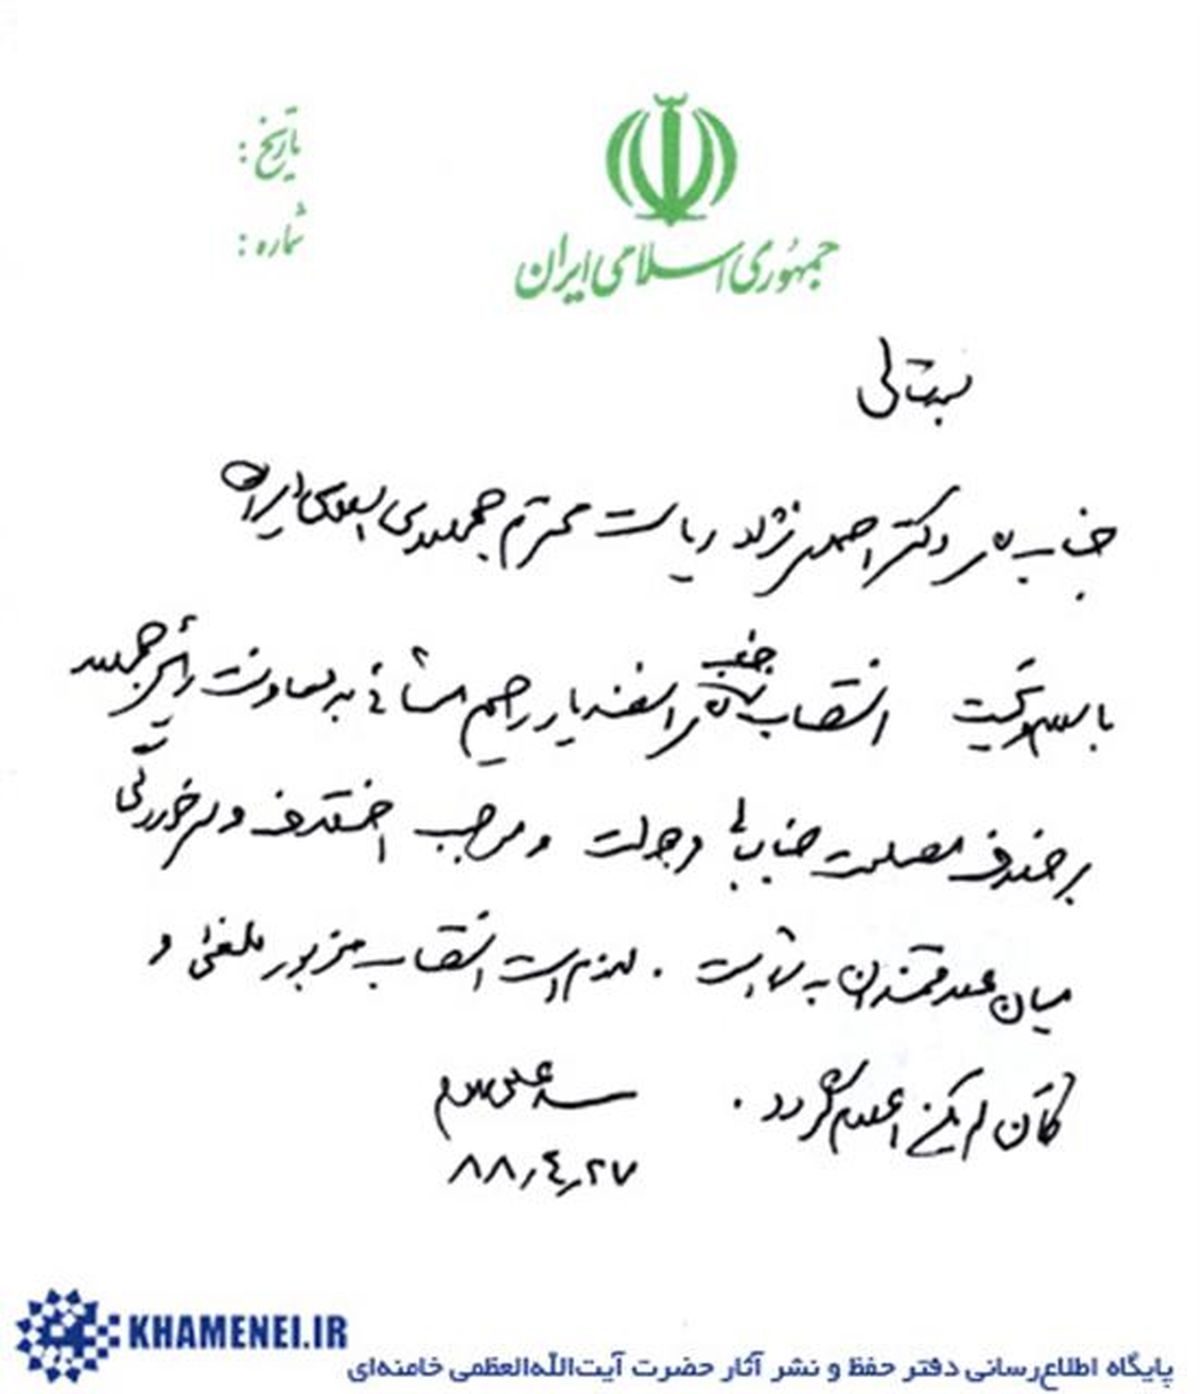 جمهوری اسلامی ایران
تاریخ :
شماره :
بسمه‌تعالی
جناب آقای دکتر احمدی نژاد ریاست محترم جمهوری اسلامی ایران
با سلام و تحیت انتصاب جناب آقای اسفندیار رحیم مشائی به معاونت رئیس جمهور
بر خلاف مصلحت جنابعالی و دولت و موجب اختلاف و سرخوردگی
میان علاقمندان به شما است . لازم است انتصاب مزبور ملغی و
کان لم یکن اعلام گردد .
سید علی خامنه‌ای
۸۸٫۴٫۲۷
KHAMENEI.IR
پایگاه اطلاع‌رسانی دفتر حفظ و نشر آثار حضرت آیت‌الله‌العظمی خامنه‌ای